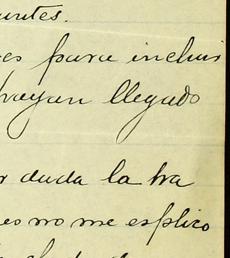 untes.
es para incluir
hayan llegado
r duda la tra
es no me esplico